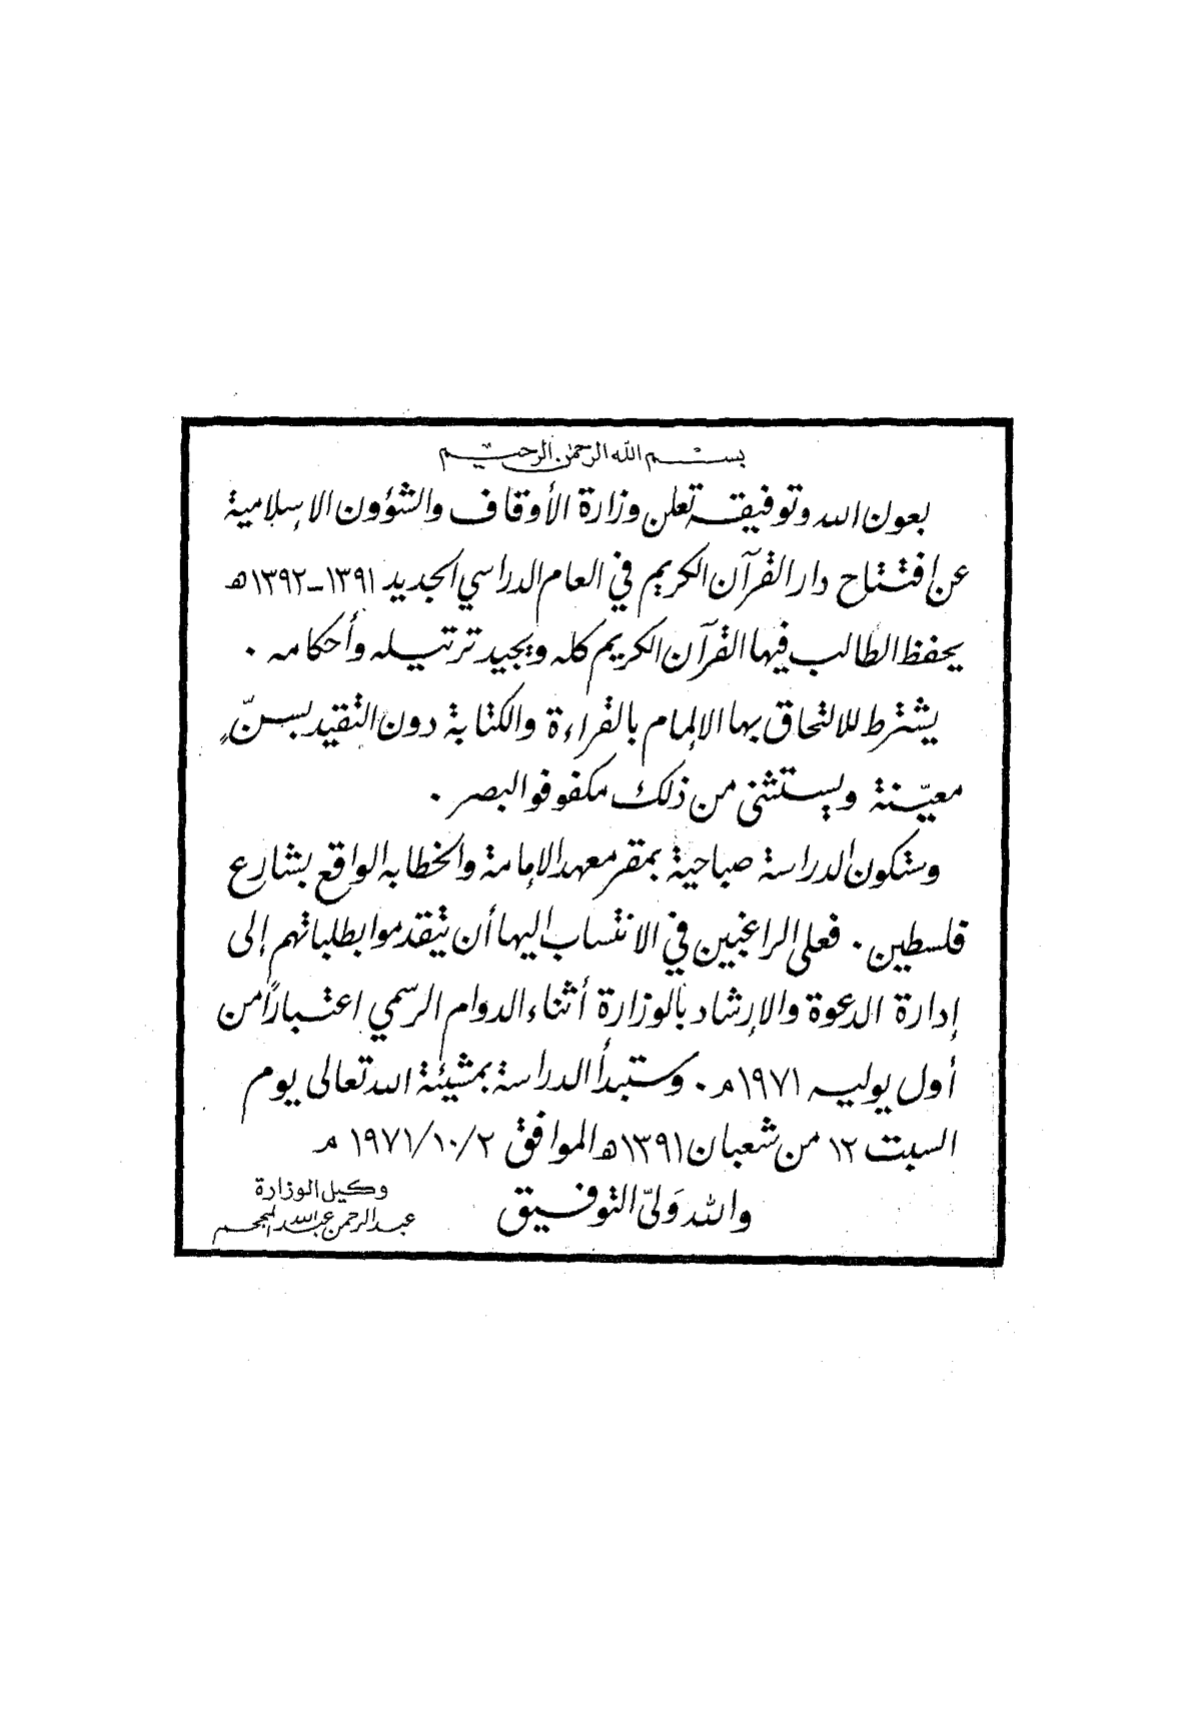 بسم الله الرحمن الرحيم
بعون الله وتوفيقه تعلن وزارة الأوقاف والشؤون الإسلامية
عن افتتاح دار القرآن الكريم في العام الدراسي الجديد ١٣٩١-١٣٩٢ه
يحفظ الطالب فيها القرآن الكريم كله ويجيد ترتيله وأحكامه .
يشترط للالتحاق بها الإلمام بالقراءة والكتابة دون التقيد بسنّ
معيّنة ويستثنى من ذلك مكفوفو البصر .
وستكون الدراسة صباحية بمقر معهد الإمامة والخطابه الواقع بشارع
فلسطين . فعلى الراغبين في الانتساب إليها أن يتقدموا بطلباتهم إلى
إدارة الدعوة والإرشاد بالوزارة أثناء الدوام الرسمي اعتبارًا من
أول يوليه ١٩٧١م . وستبدأ الدراسة بمشيئة الله تعالى يوم
السبت ١٢ من شعبان ١٣٩١ه الموافق ١٩٧١/١٠/٢ م
والله وَليّ التوفيق
وكيل الوزارة
عبد الرحمن عبد الله المجحم